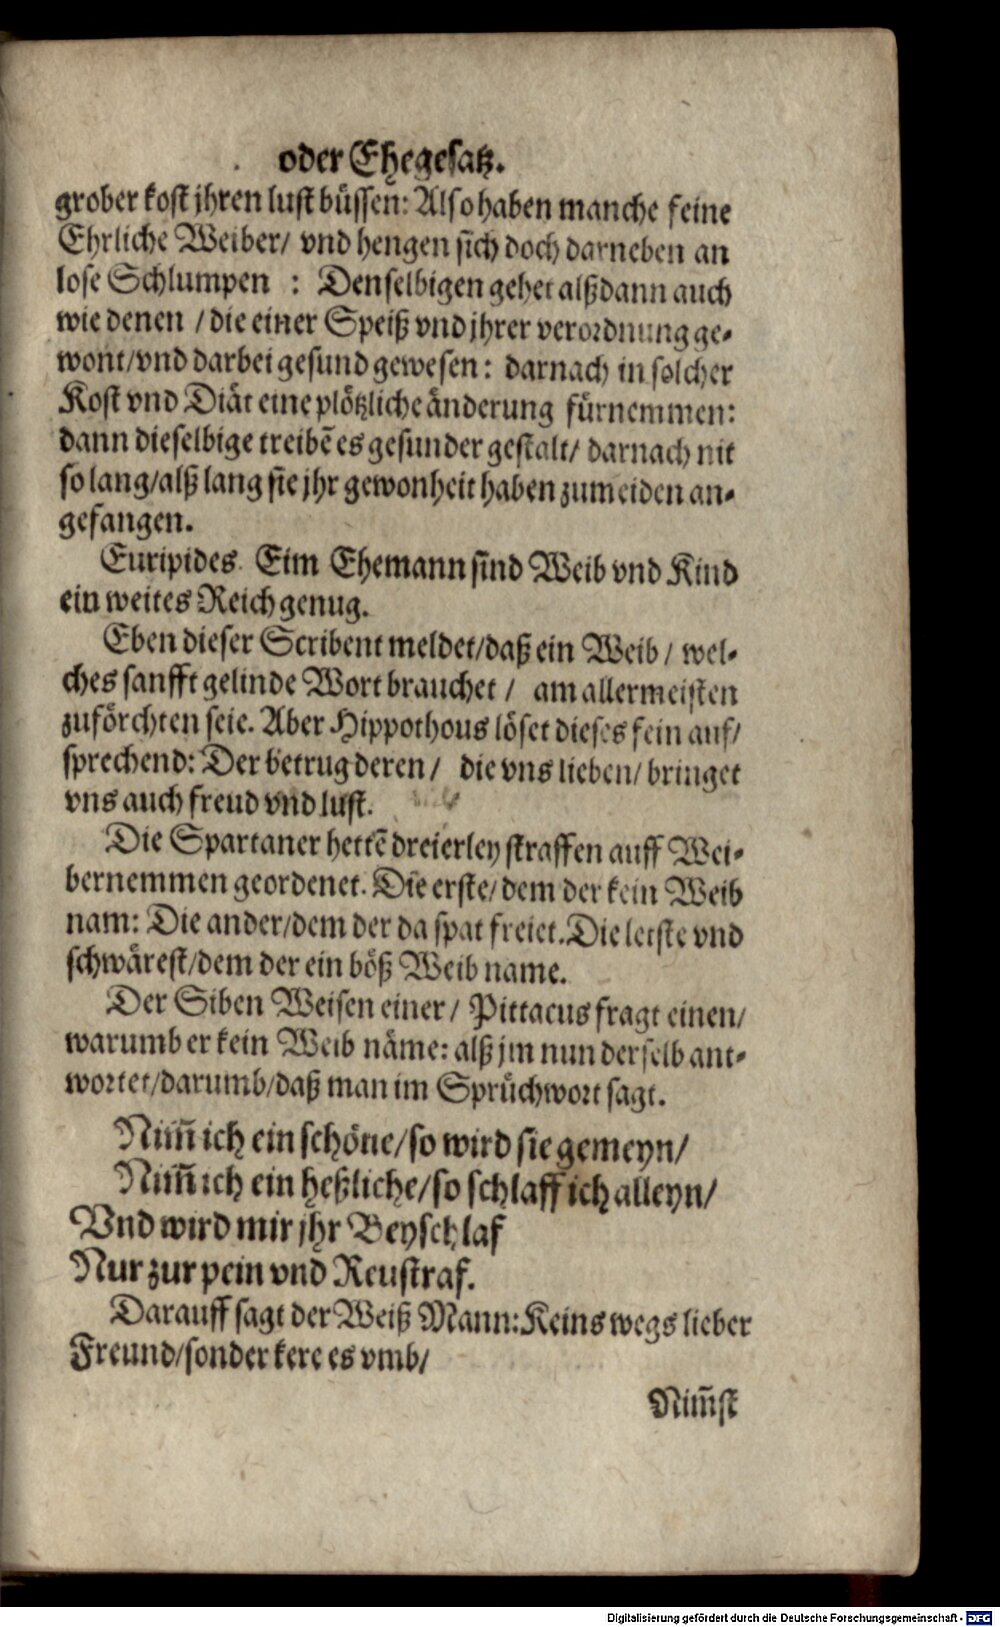 oder Ehegesatz.
grober kost jhren lust büssen: Also haben manche feine
Ehrliche Weiber/ vnd hengen sich doch darneben an
lose Schlumpen : Denselbigen gehet alßdann auch
wie denen / die einer Speiß vnd jhrer verordnung ge-
wont/vnd darbei gesund gewesen: darnach in solcher
Kost vnd Diät eine plötzliche änderung fürnemmen:
dann dieselbige treibē es gesunder gestalt/ darnach nit
so lang/alß lang sie jhr gewonheit haben zumeiden an-
gefangen.
Euripides. Eim Ehemann sind Weib vnd Kind
ein weites Reich genug.
Eben dieser Scribent meldet/daß ein Weib/ wel-
ches sanfft gelinde Wort brauchet / am allermeisten
zuförchten seie. Aber Hippothous löset dieses fein auf/
sprechend: Der betrug deren/ die vns lieben/ bringet
vns auch freud vnd lust.
Die Spartaner hettē dreierley straffen auff Wei-
bernemmen geordenet. Die erste/dem der kein Weib
nam: Die ander/dem der da spat freiet. Die letste vnd
schwärest/dem der ein böß Weib name.
Der Siben Weisen einer/ Pittacus fragt einen/
warumb er kein Weib näme: alß jm nun derselb ant-
wortet/darumb/daß man im Sprüchwort sagt.
Nim̄ ich ein schöne/so wird sie gemeyn/
Nim̄ ich ein heßliche/so schlaff ich alleyn/
Vnd wird mir jhr Beyschlaf
Nur zur pein vnd Reustraf.
Darauff sagt der Weiß Mann: Keins wegs lieber
Freund/sonder kere es vmb/
Nim̄st
Digitalisierung gefördert durch die Deutsche Forschungsgemeinschaft - DFG